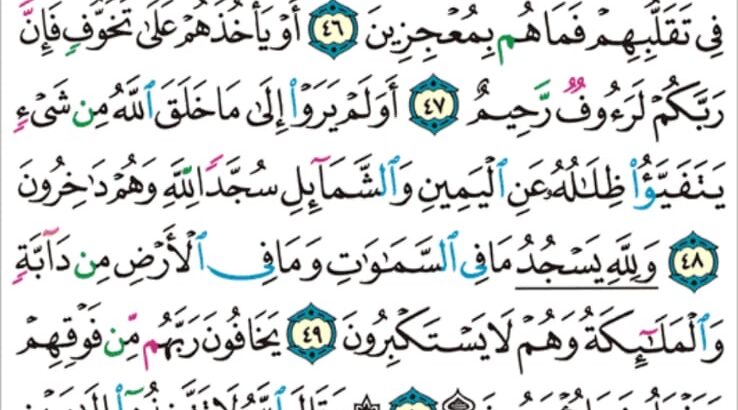 فِي تَقَلُّبِهِمْ فَمَا هُم بِمُعْجِزِينَ ٤٦ أَوْ يَأْخُذَهُمْ عَلَىٰ تَخَوُّفٍ فَإِنَّ
رَبَّكُمْ لَرَءُوفٌ رَّحِيمٌ ٤٧ أَوَلَمْ يَرَوْا۟ إِلَىٰ مَا خَلَقَ ٱللَّهُ مِن شَىْءٍ
يَتَفَيَّؤُا۟ ظِلَـٰلُهُۥ عَنِ ٱلْيَمِينِ وَٱلشَّمَآئِلِ سُجَّدًا لِّلَّهِ وَهُمْ دَٰخِرُونَ
٤٨ وَلِلَّهِ يَسْجُدُ مَا فِى ٱلسَّمَـٰوَٰتِ وَمَا فِى ٱلْأَرْضِ مِن دَآبَّةٍ
وَٱلْمَلَـٰٓئِكَةُ وَهُمْ لَا يَسْتَكْبِرُونَ ٤٩ يَخَافُونَ رَبَّهُم مِّن فَوْقِهِمْ